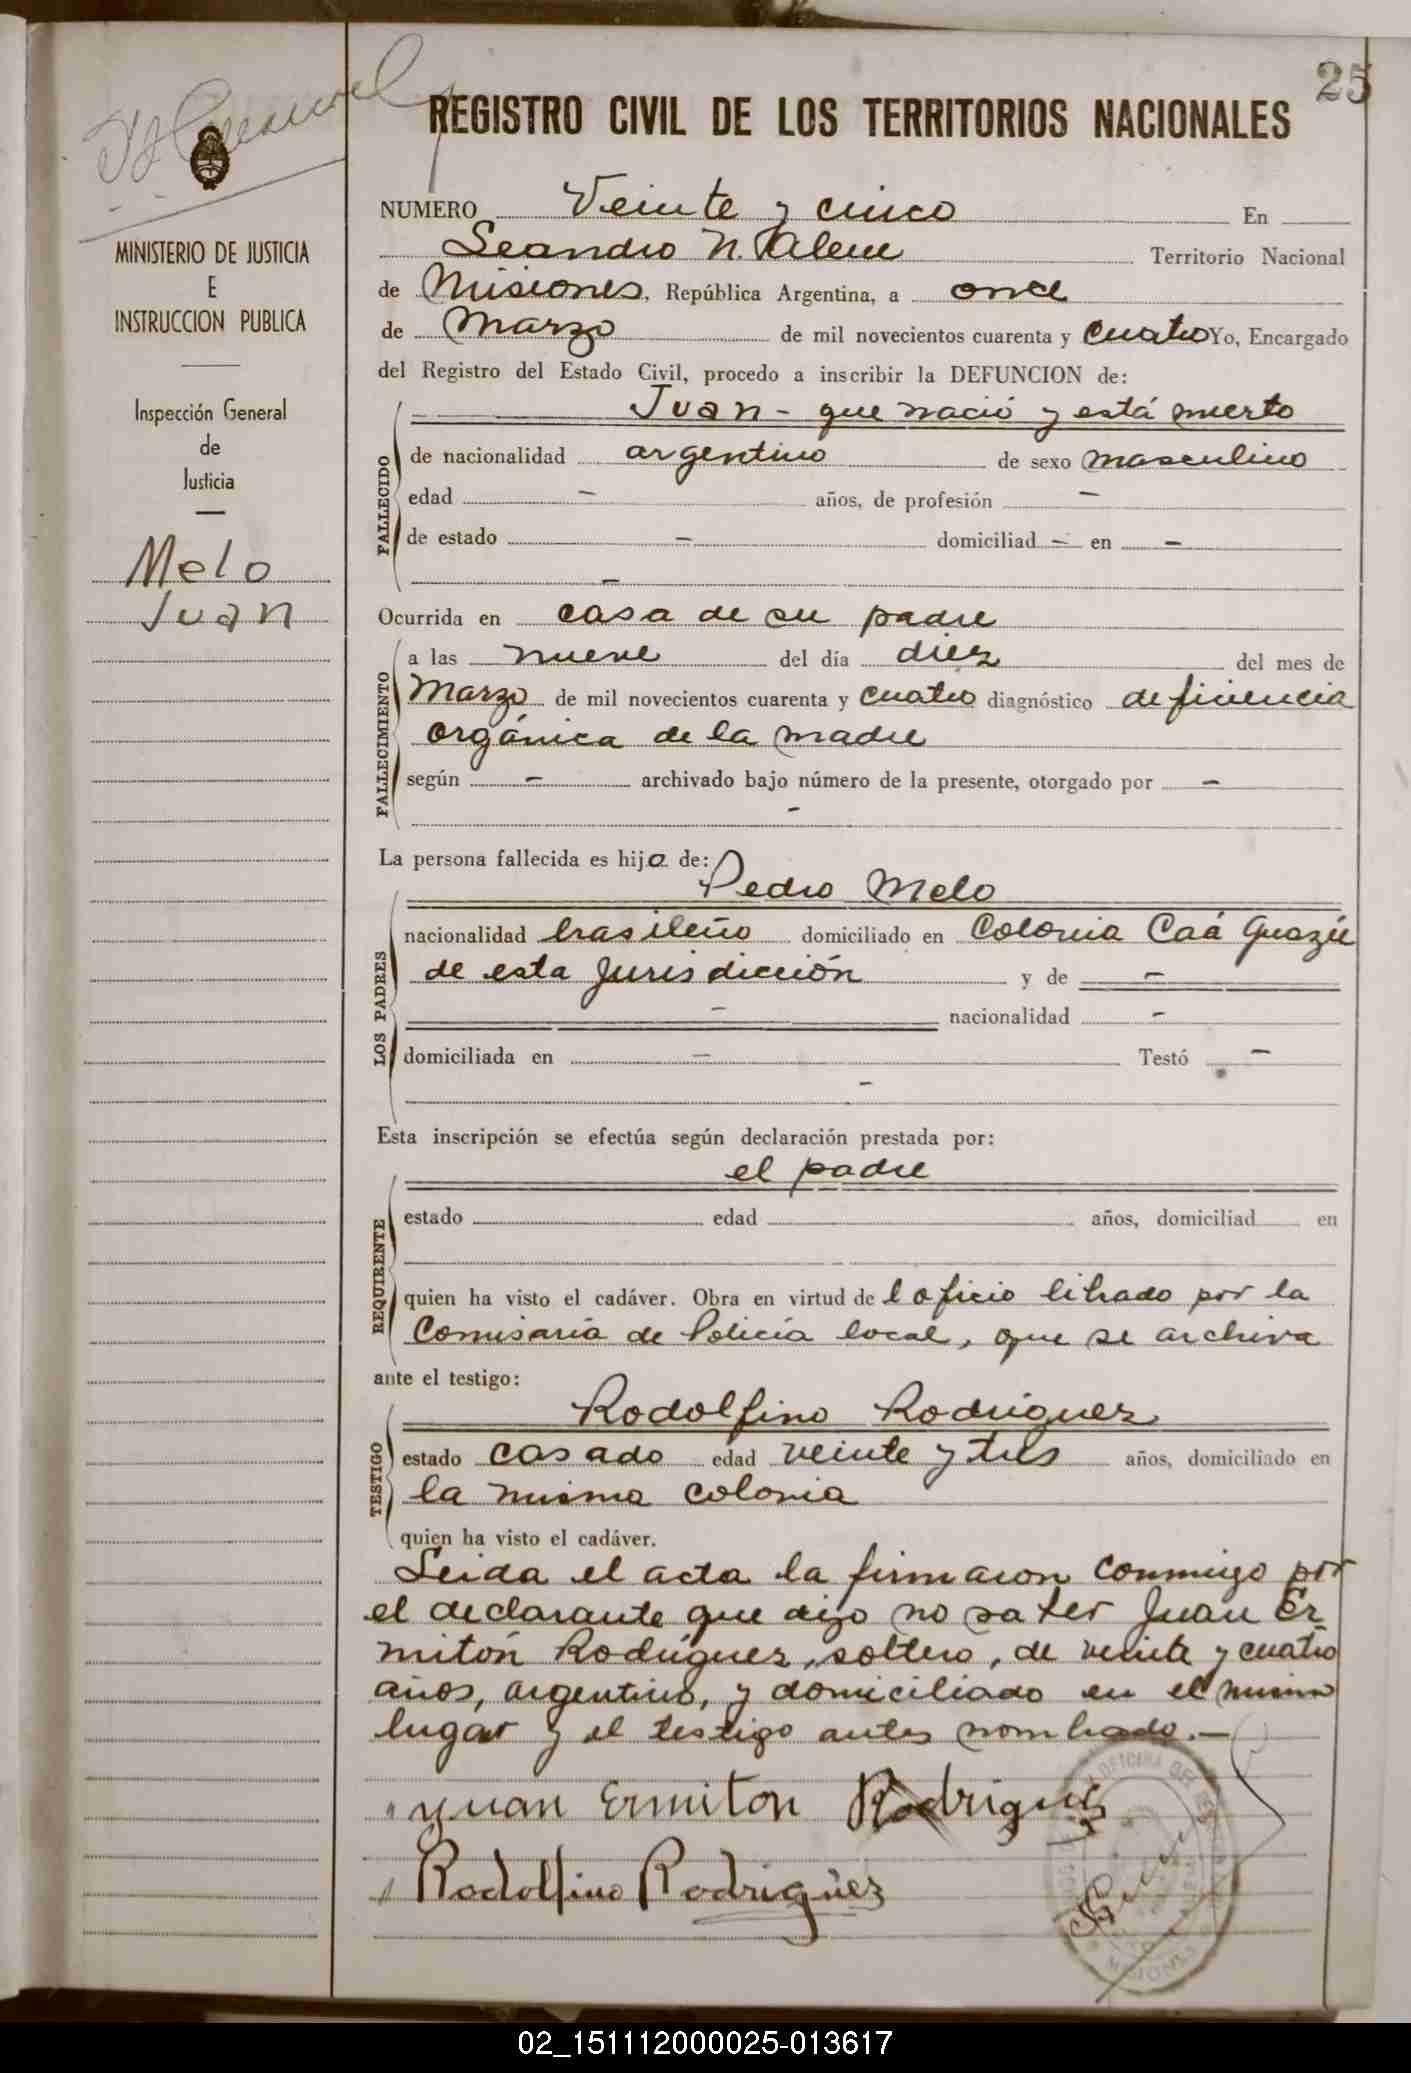 25
REGISTRO CIVIL DE LOS TERRITORIOS NACIONALES
MINISTERIO DE JUSTICIA
E
INSTRUCCION PUBLICA
Inspección General
de
Justicia
Melo
Juan
NUMERO Veinte y cinco En
Leandro N. Alem Territorio Nacional
de Misiones, República Argentina, a once
de Marzo de mil novecientos cuarenta y cuatro Yo, Encargado
del Registro del Estado Civil, procedo a inscribir la DEFUNCION de:
Juan - que nació y está muerto
FALLECIDO
de nacionalidad argentino de sexo masculino
edad - años, de profesión -
de estado - domiciliad - en -
-
Ocurrida en casa de su padre
FALLECIMIENTO
a las nueve del día diez del mes de
Marzo de mil novecientos cuarenta y cuatro diagnóstico deficiencia
orgánica de la madre
según - archivado bajo número de la presente, otorgado por -
-
La persona fallecida es hijo de:
Pedro Melo
LOS PADRES
nacionalidad brasileño domiciliado en Colonia Caá Guazú
de esta Jurisdicción y de -
- nacionalidad -
domiciliada en - Testó -
-
Esta inscripción se efectúa según declaración prestada por:
el padre
REQUIRENTE
estado edad años, domiciliad en
quien ha visto el cadáver. Obra en virtud de l oficio librado por la
Comisaría de Policía local, que se archiva
ante el testigo:
Rodolfino Rodriguez
TESTIGO
estado casado edad veinte y tres años, domiciliado en
la misma colonia
quien ha visto el cadáver.
Leida el acta la firmaron conmigo por
el declarante que dijo no saber Juan Er
mitón Rodriguez, soltero, de veinte y cuatro
años, argentino, y domiciliado en el mismo
lugar y el testigo antes nombrado.-
Juan Ermiton Rodriguez
Rodolfino Rodriguez
OFICINA DEL
MISIONES
02_151112000025-013617